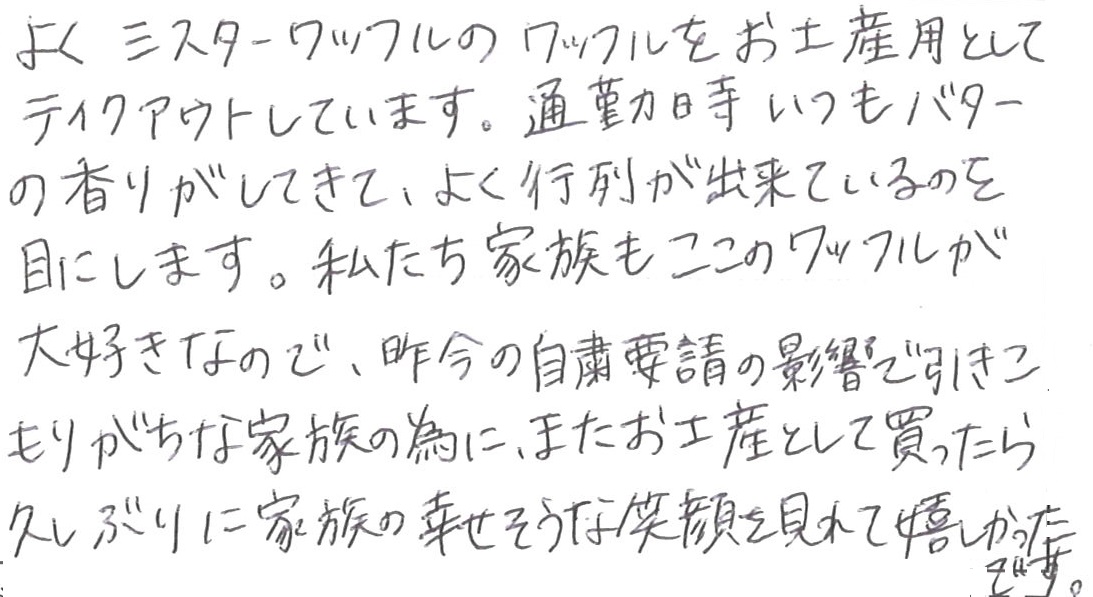 よくミスターワッフルのワッフルをお土産用として
テイクアウトしています。通勤時いつもバター
の香りがしてきて、よく行列が出来ているのを
目にします。私たち家族もここのワッフルが
大好きなので、昨今の自粛要請の影響で引きこ
もりがちな家族の為に、またお土産として買ったら
久しぶりに家族の幸せそうな笑顔を見れて嬉しかった
です。